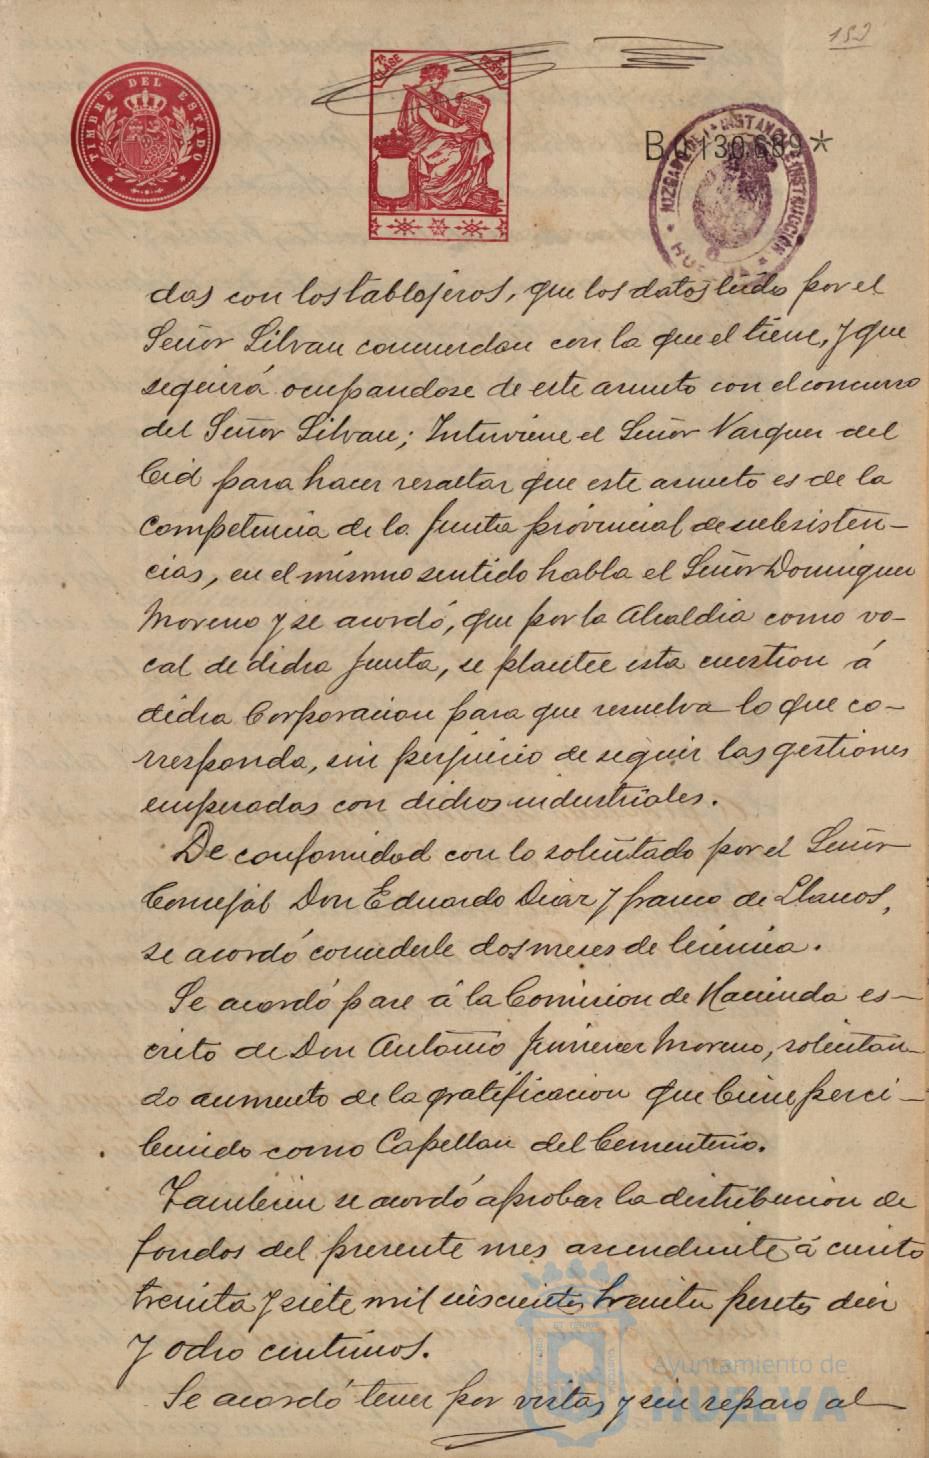 152
TIMBRE DEL ESTADO
7ª CLASE
PESETAS
B 0.130.689 *
JUZGADO DE 1ª INSTANCIA E INSTRUCCIÓN
HUELVA
das con los tablajeros, que los datos leido por el
Señor Silvan concuerdan con la que el tiene, y que
seguirá ocupandose de este asunto con el concurso
del Señor Silvan; Interviene el Señor Vazquez del
Cid para hacer resaltar que este asunto es de la
competencia de la Junta provincial de subsisten-
cias, en el mismo sentido habla el Señor Dominguez
Moreno y se acordó, que por la Alcaldia como vo-
cal de dicha Junta, se plantee esta cuestion á
dicha Corporacion para que resuelva lo que co-
rresponda, sin perjuicio de seguir las gestiones
empezadas con dichos industriales.
De confomidad con lo solicitado por el Señor
Concejal Don Eduardo Diaz y franco de Llanos,
se acordó concederle dos meses de licencia.
Se acordó pase á la Comision de Hacienda es-
crito de Don Antonio Jimenez Moreno, solicitan-
do aumento de la gratificacion que viene perci-
biendo como Capellan del Cementerio.
Tambien se acordó aprobar la distribucion de
fondos del presente mes ascendente á ciento
treinta y siete mil seiscientas treinta pesetas diez
y ocho centimos.
Se acordó tener por vistas y sin reparo al
Ayuntamiento de
HUELVA